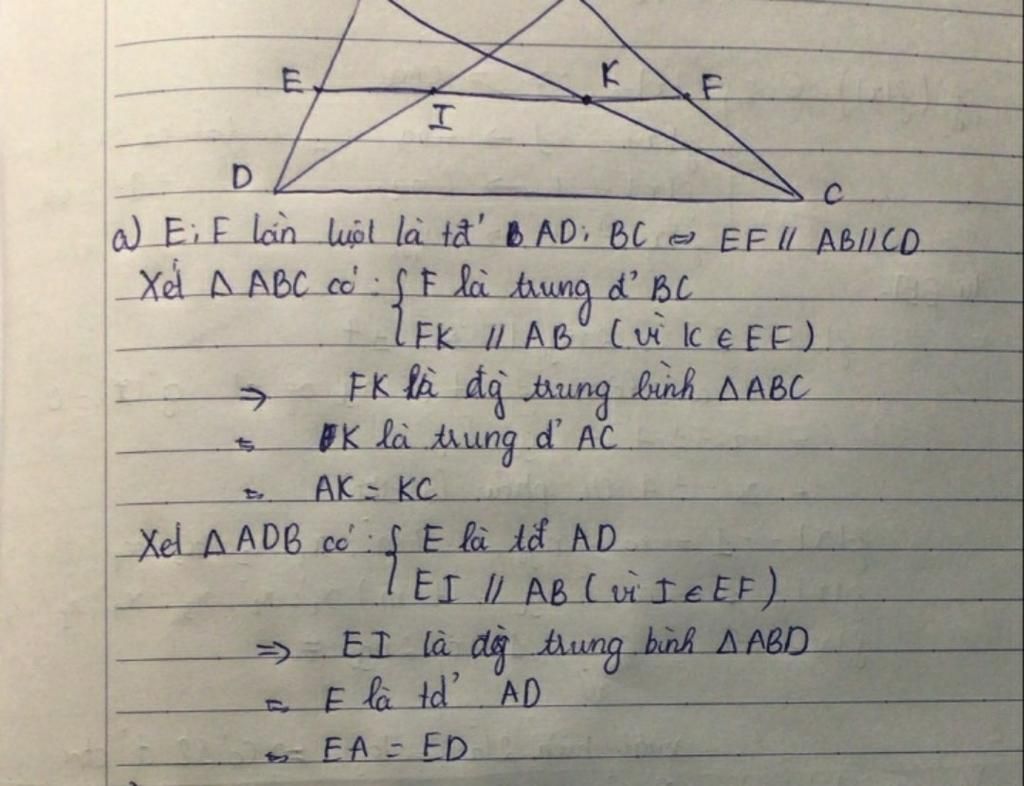 E
K
F
I
D
C
a) E; F lần lượt là tđ' AD; BC ⇔ EF // AB // CD
Xét Δ ABC có: { F là trung đ' BC
FK // AB (vì K ∈ EF)
⇒ FK là đg trung bình Δ ABC
⇒ K là trung đ' AC
⇒ AK = KC
Xét Δ ADB có: { E là tđ' AD
EI // AB (vì I ∈ EF)
⇒ EI là đg trung bình Δ ABD
⇒ E là tđ' AD
⇒ EA = ED